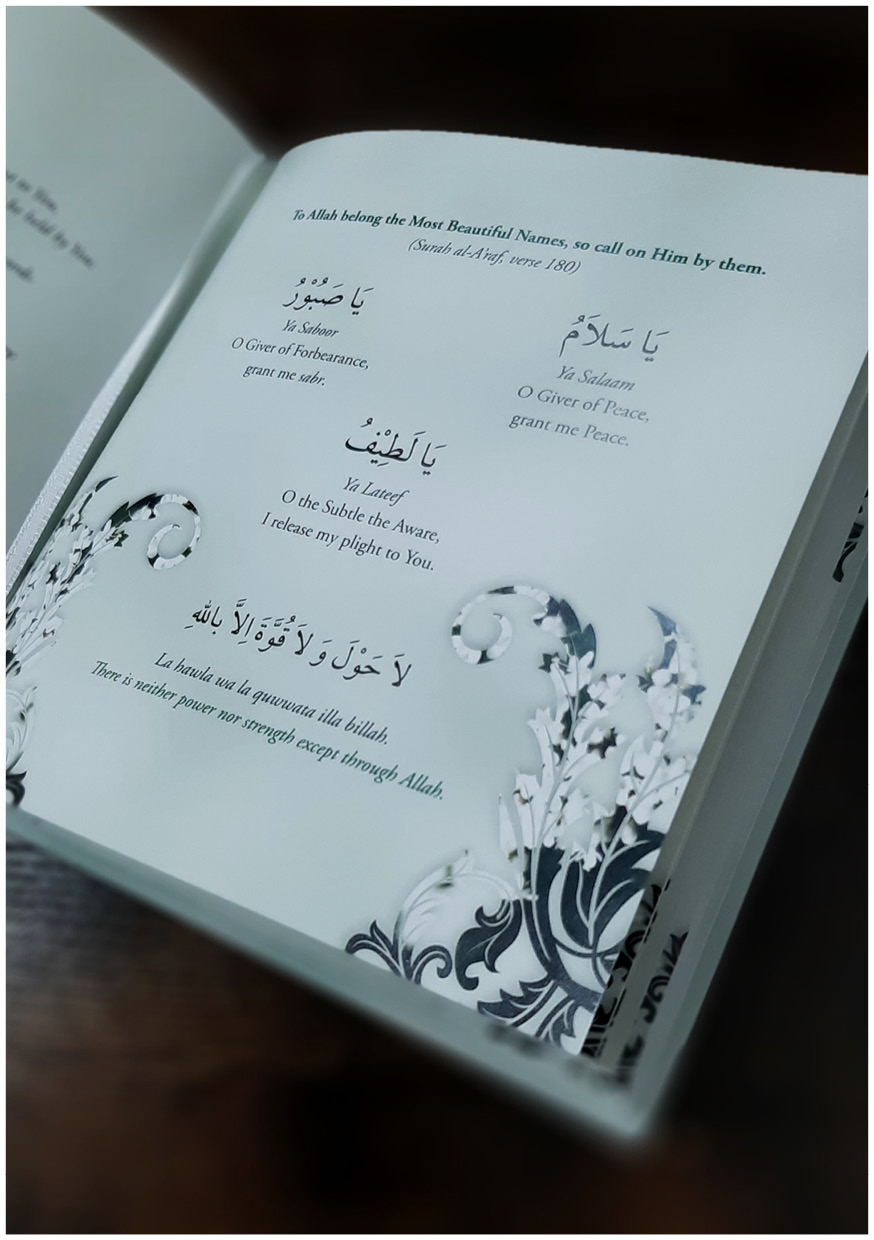 To Allah belong the Most Beautiful Names, so call on Him by them.
(Surah al-A'raf, verse 180)
يَا صَبُوْرُ
Ya Saboor
O Giver of Forbearance,
grant me sabr.
يَا سَلَامُ
Ya Salaam
O Giver of Peace,
grant me Peace.
يَا لَطِيْفُ
Ya Lateef
O the Subtle the Aware,
I release my plight to You.
لاَ حَوْلَ وَ لاَ قُوَّةَ اِلاَّ بِاللهِ
La hawla wa la quwwata illa billah.
There is neither power nor strength except through Allah.